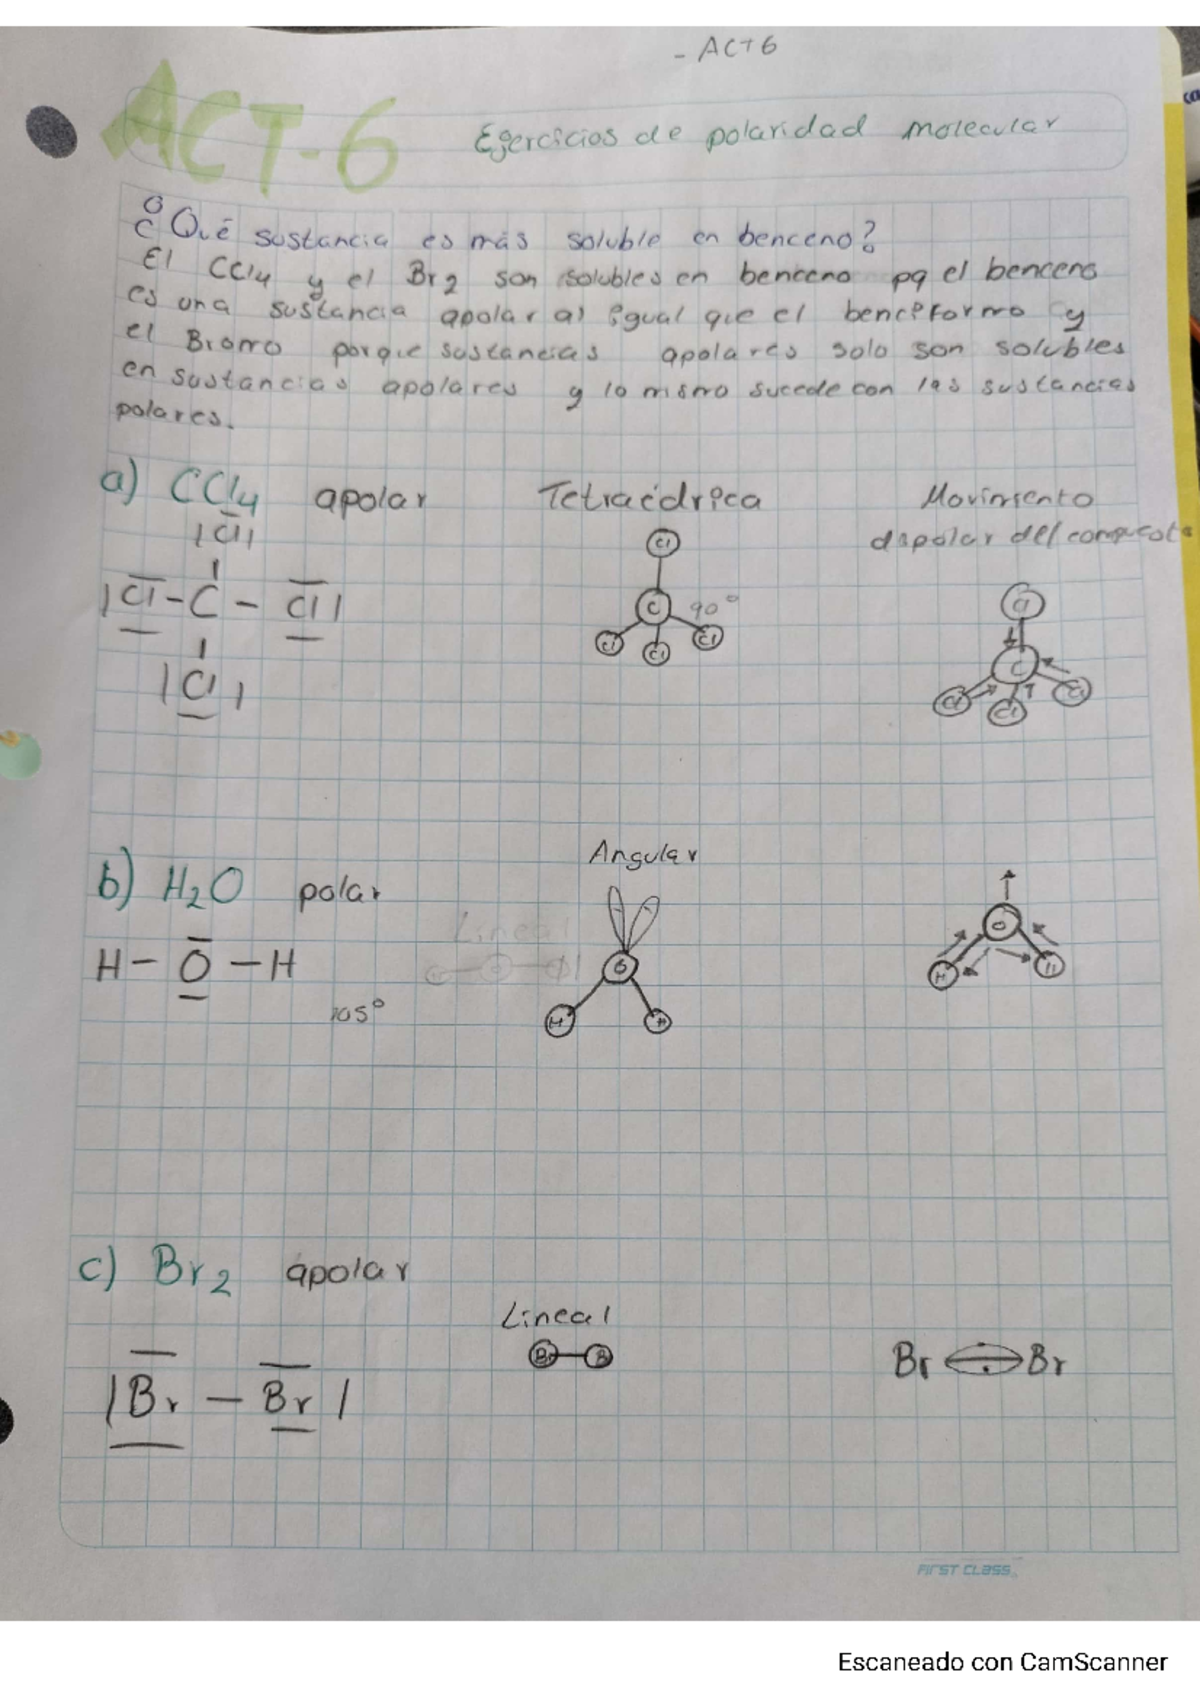 - ACT 6
ACT-6
Ejercicios de polaridad molecular
¿Qué sustancia es más soluble en benceno?
El CCl4 y el Br2 son solubles en benceno pq el benceno
es una sustancia apolar al igual que el benciformo y
el Bromo porque sustancias apolares solo son solubles
en sustancias apolares y lo mismo sucede con las sustancias
polares.
a) CCl4 apolar Tetraédrica Movimiento
dipolar del compuesto
|Cl|
|Cl-C-Cl|
|Cl|
Cl
C 90°
Cl Cl Cl
Cl
C
Cl Cl Cl
b) H2O polar Angular
Lineal
H-O-H
105°
O
H H
O
H H
c) Br2 apolar
Lineal
Br-B
Br Br
|Br-Br|
FIRST CLASS
Escaneado con CamScanner